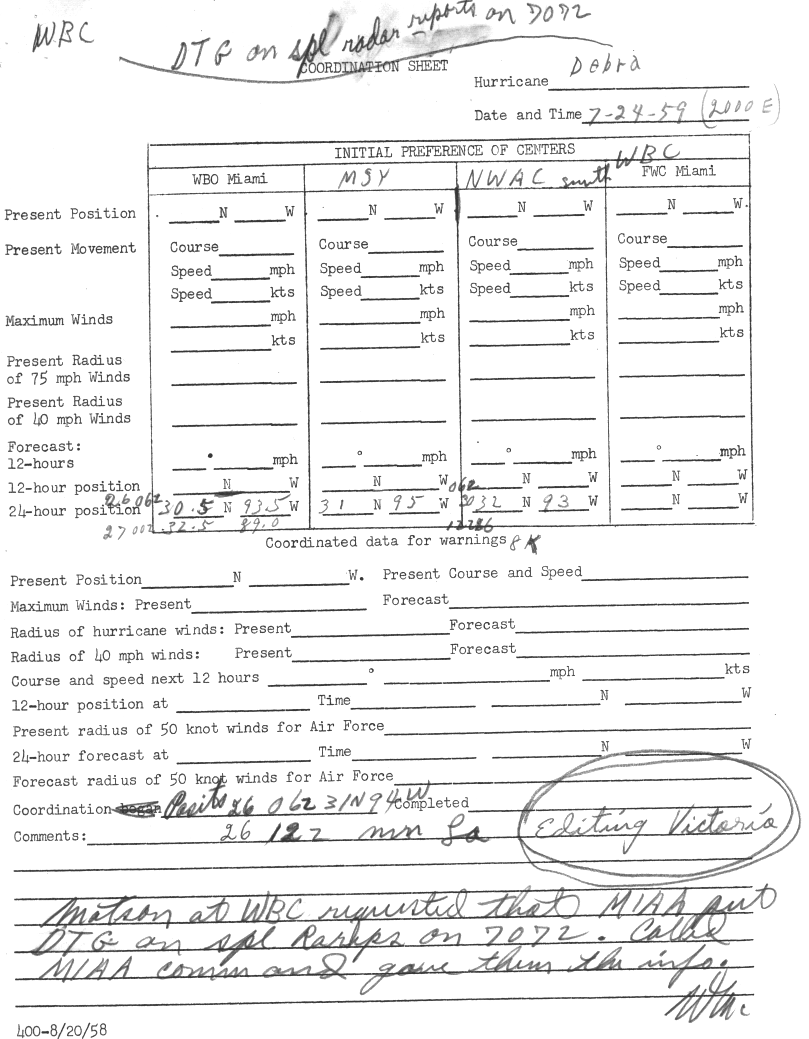 WBC
DTG on spl radar reports on 7072
COORDINATION SHEET
Hurricane Debra
Date and Time 7-24-59 (2000 E)
INITIAL PREFERENCE OF CENTERS
WBO Miami MSY NWAC smith WBC FWC Miami
Present Position N W N W N W N W.
Present Movement Course Course Course Course
Speed mph Speed mph Speed mph Speed mph
Speed kts Speed kts Speed kts Speed kts
Maximum Winds mph mph mph mph
kts kts kts kts
Present Radius
of 75 mph Winds
Present Radius
of 40 mph Winds
Forecast:
12-hours ° mph ° mph ° mph ° mph
12-hour position N W N W 06Z N W N W
24-hour position 26 06Z 30.5 N 93.5 W 31 N 95 W 32 N 93 W N W
27 00Z 32.5 89.0
Coordinated data for warnings
Present Position N W. Present Course and Speed
Maximum Winds: Present Forecast
Radius of hurricane winds: Present Forecast
Radius of 40 mph winds: Present Forecast
Course and speed next 12 hours ° mph kts
12-hour position at Time N W
Present radius of 50 knot winds for Air Force
24-hour forecast at Time N W
Forecast radius of 50 knot winds for Air Force
Coordination began Posits 26 06Z 31N 94W Completed
Comments: 26 12Z La
Editing Victoria
Matson at WBC requested that MIAA put
DTG on spl Rareps on 7072. Called
MIAA comm and gave them the info.
400-8/20/58